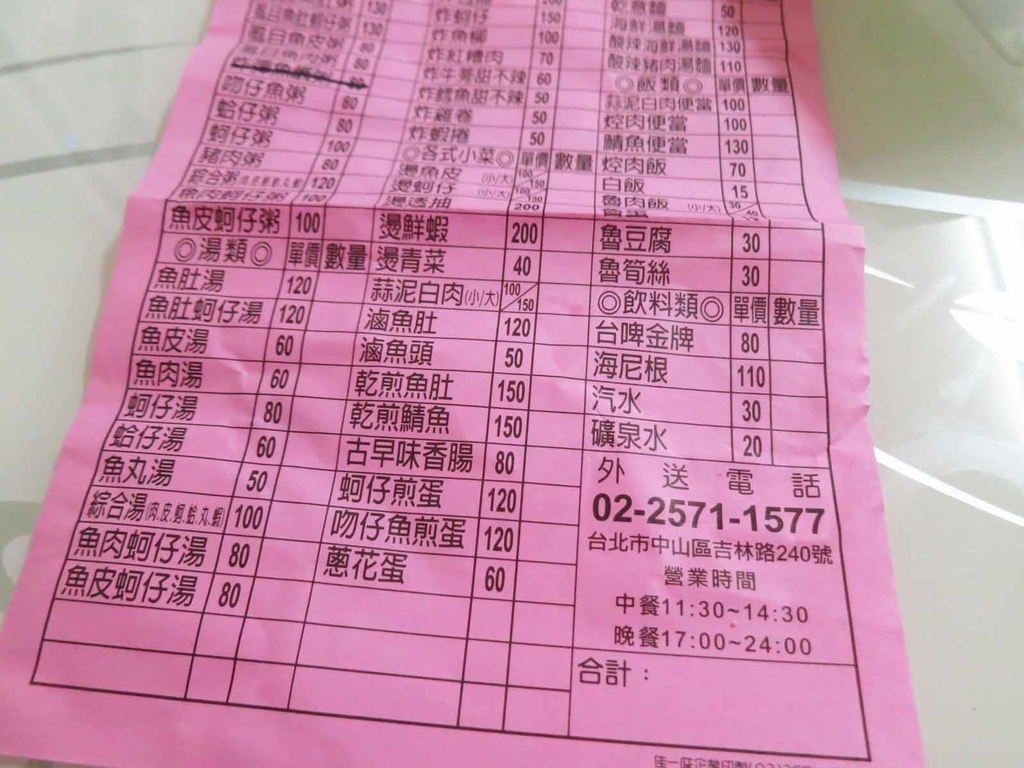 虱目魚肚蚵仔粥 130
虱目魚皮粥 80
吻仔魚粥 80
蛤仔粥 80
蚵仔粥 100
豬肉粥 80
綜合粥 120
魚肉蚵仔粥 100
魚皮蚵仔粥 100
◎湯類◎ 單價 數量
魚肚湯 120
魚肚蚵仔湯 120
魚皮湯 60
魚肉湯 60
蚵仔湯 80
蛤仔湯 60
魚丸湯 50
綜合湯(肉,皮,蚵,蛤,丸,蝦) 100
魚肉蚵仔湯 80
魚皮蚵仔湯 80
炸蚵仔 150
炸魚柳 100
炸紅糟肉 70
炸牛蒡甜不辣 60
炸鱈魚甜不辣 50
炸雞卷 50
炸蝦捲 50
◎各式小菜◎ 單價 數量
燙魚皮 (小/大) 100/150
燙蚵仔 (小/大) 100/150
燙透抽 200
燙鮮蝦 200
燙青菜 40
蒜泥白肉(小/大) 100/150
滷魚肚 120
滷魚頭 50
乾煎魚肚 150
乾煎鯖魚 150
古早味香腸 80
蚵仔煎蛋 120
吻仔魚煎蛋 120
蔥花蛋 60
乾意麵 50
海鮮湯麵 120
酸辣海鮮湯麵 130
酸辣豬肉湯麵 110
◎飯類◎ 單價 數量
蒜泥白肉便當 100
焢肉便當 100
鯖魚便當 130
焢肉飯 70
白飯 15
魯肉飯 (小/大) 30/40
魯蛋
魯豆腐 30
魯筍絲 30
◎飲料類◎ 單價 數量
台啤金牌 80
海尼根 110
汽水 30
礦泉水 20
外送電話
02-2571-1577
台北市中山區吉林路240號
營業時間
中餐11:30~14:30
晚餐17:00~24:00
合計：